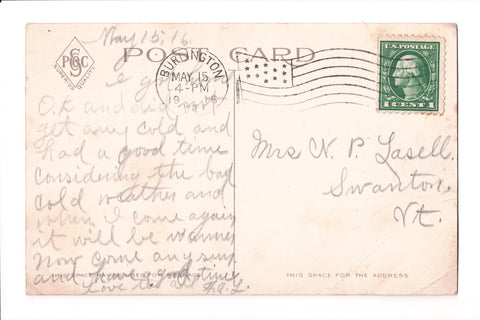 May 15, 16.
POST CARD
PCCO
SUPERIOR QUALITY
BURLINGTON
MAY 15
4-PM
19
VT.
U.S. POSTAGE
1 CENT 1
I
O.K and did
get any cold and
had a good time
considering the bad
cold weather and
when I come again
it will be warmer
now come any
and have a good time
Love to all F.A.L.
THIS SPACE FOR MESSAGE
Mrs N. P. Lasell.
Swanton.
Vt.
THIS SPACE FOR THE ADDRESS